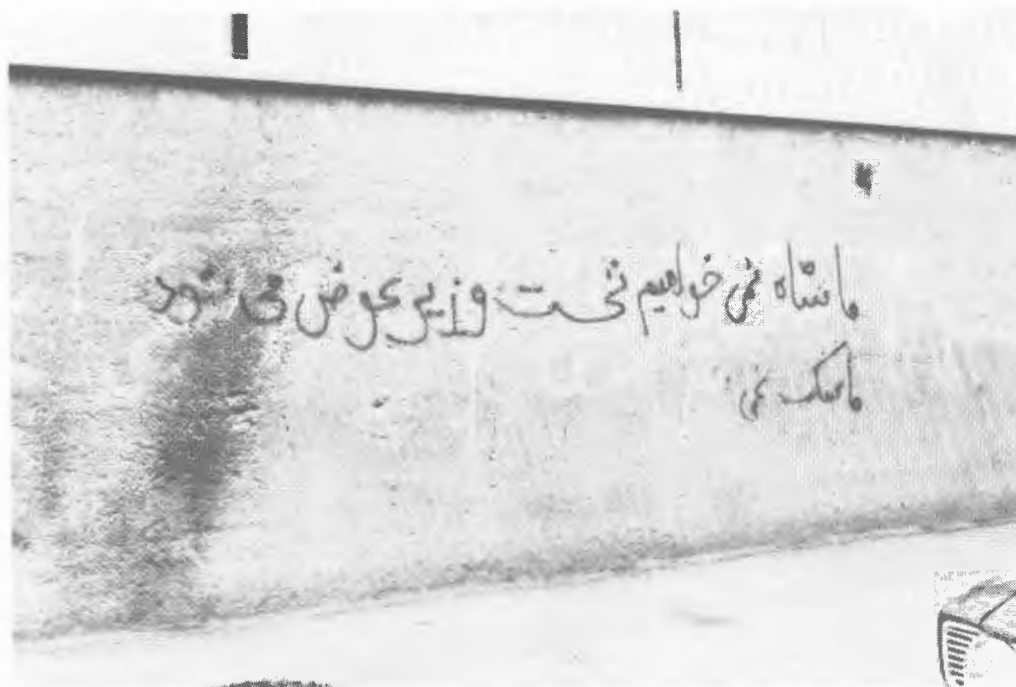 ما شاه نمی خواهیم نخست وزیر عوض می شود
ما سگ نمی